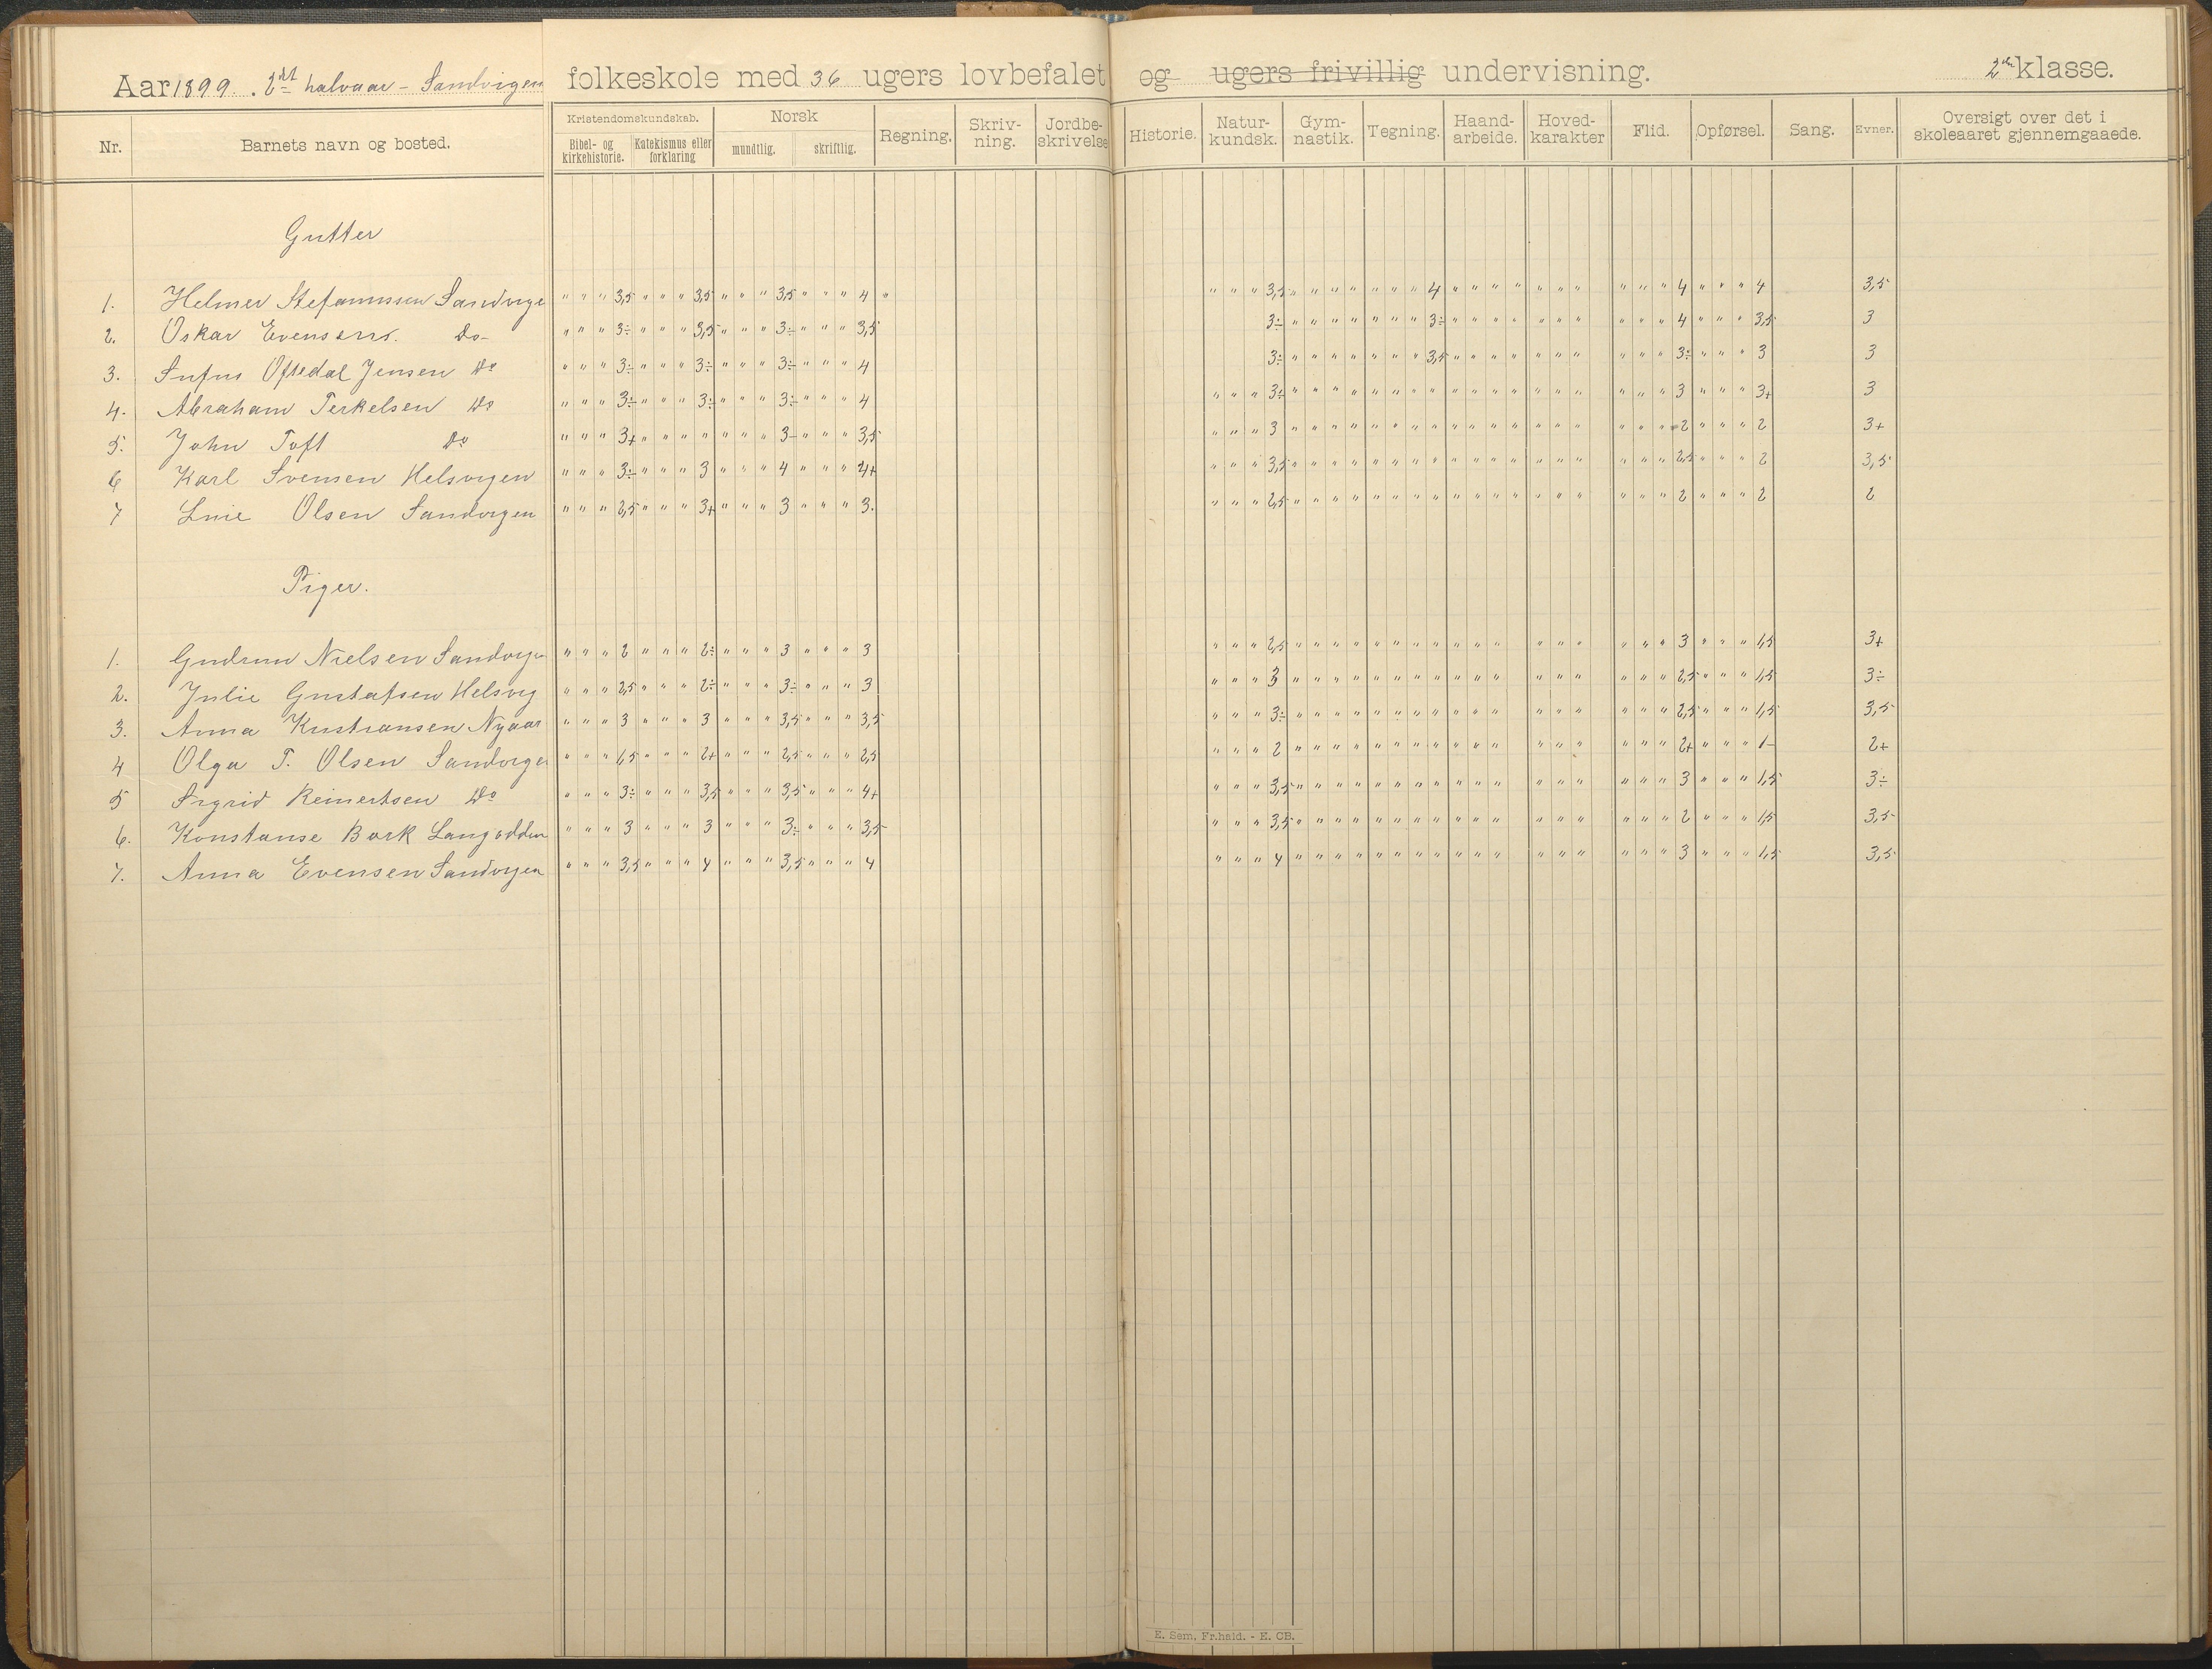 Aar 1899. 2det halvaar - Sandvigen folkeskole med 36 ugers lovbefalet og ugers frivillig undervisning. 2den klasse.
Nr. Barnets navn og bosted. Kristendomskundskab. Bibel- og kirkehistorie. Katekismus eller forklaring Norsk mundtlig. skriftlig. Regning. Skriv-ning. Jordbe-skrivelse Historie. Natur-kundsk. Gym-nastik. Tegning. Haand-arbeide. Hoved-karakter Flid. Opførsel. Sang. Evner. Oversigt over det i skoleaaret gjennemgaaede.
Gutter
1. Helmer Stefanussen Sandvige " " " 3,5 " " " 3,5 " " " 3,5 " " " 4 " " " " 3,5 " " " " " " " 4 " " " " " " " " " " 4 " " " 4 3,5
2. Oskar Evensens. Do- " " " 3÷ " " " 3,5 " " " 3÷ " " " 3,5 3÷ " " " " " " " 3÷ " " " " " " " " " " 4 " " " 3,5 3
3. Oftedal Jensen Do " " " 3÷ " " " 3÷ " " " 3÷ " " " 4 3÷ " " " " " " " 3,5 " " " " " " " " " " 3÷ " " " 3 3
4. Abraham Terkelsen Do " " " 3÷ " " " 3÷ " " " 3÷ " " " 4 " " " 3÷ " " " " " " " " " " " " " " " " " " 3 " " " 3+ 3
5. John Toft Do " " " 3+ " " " " " " " 3- " " " 3,5 " " " 3 " " " " " " " " " " " " " " " " " " 2 " " " 2 3+
6 Karl Svensen Helsvigen " " " 3÷ " " " 3 " " " 4 " " " 4+ " " " 3,5 " " " " " " " " " " " " " " " " " " 2,5 " " " 2 3,5
7 Olsen Sandvigen " " " 2,5 " " " 3+ " " " 3 " " " 3. " " " 2,5 " " " " " " " " " " " " " " " " " " 2 " " " 2 2
Piger.
1. Gudrun Nielsen Sandvige " " " 2 " " " 2÷ " " " 3 " " " 3 " " " 2,5 " " " " " " " " " " " " " " " " " 3 " " " 1,5 3+
2. Julie Gustafsen Helsvig " " " 2,5 " " " 2÷ " " " 3÷ " " " 3 " " " 3 " " " " " " " " " " " " " " " " " 2,5 " " " 1,5 3÷
3. Anna Kristiansen Nygaar " " " 3 " " " 3 " " " 3,5 " " " 3,5 " " " 3÷ " " " " " " " " " " " " " " " " " 2,5 " " " 1,5 3,5
4 Olga T. Olsen Sandvige " " " 1,5 " " " 2+ " " " 2,5 " " " 2,5 " " " 2 " " " " " " " " " " " " " " " " " 2+ " " " 1- 2+
5 Sigrid Reinertsen Do " " " 3÷ " " " 3,5 " " " 3,5 " " " 4+ " " " 3,5 " " " " " " " " " " " " " " " " " 3 " " " 1,5 3÷
6. Konstanse Bark Langodden " " " 3 " " " 3 " " " 3÷ " " " 3,5 " " " 3,5 " " " " " " " " " " " " " " " " " 2 " " " 1,5 3,5
7. Anna Evensen Sandvigen " " " 3,5 " " " 4 " " " 3,5 " " " 4 " " " 4 " " " " " " " " " " " " " " " " " 3 " " " 1,5 3,5
E. Sem, Fr.hald. - E. CB.